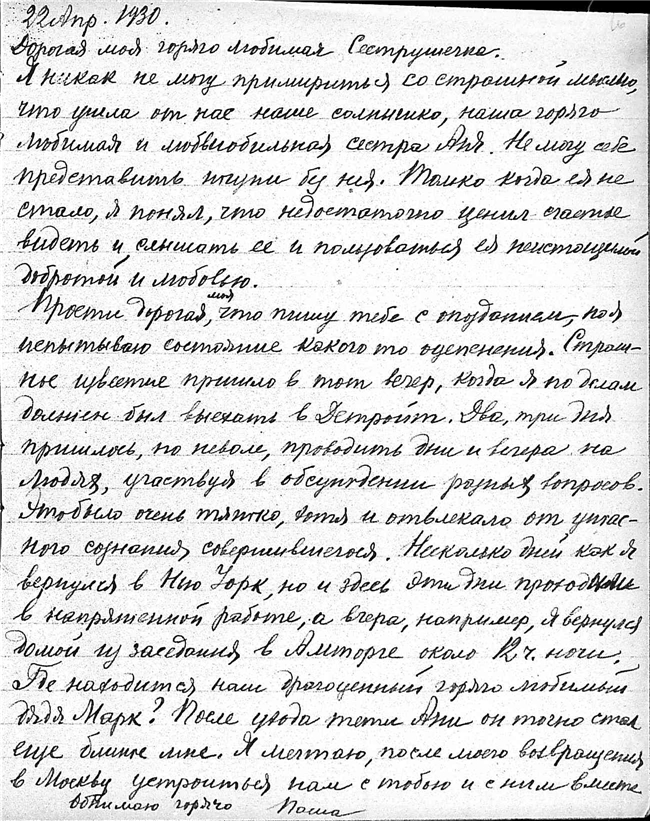 22 Апр. 1930.
Дорогая моя горячо любимая Сеструшечка.
Я никак не могу примириться со страшной мыслью,
что ушла от нас наше солнышко, наша горячо
любимая и любвиобильная сестра Аня. Не могу себе
представить жизни без нея. Только когда ея не
стало, я понял, что недостаточно ценил счастье
видеть и слышать ее и пользоваться ея неистощимой
добротой и любовью.
Прости дорогая моя, что пишу тебе с опозданием, но я
испытываю состояние какого то оцепенения. Страш-
ное известие пришло в тот вечер, когда я по делам
должен был выехать в Детройт. Два, три дня
пришлось, по неволе, проводить дни и вечера на
людях, участвуя в обсуждении разных вопросов.
Это было очень тяжко, хотя и отвлекало от ужас-
ного сознания совершившегося. Несколько дней как я
вернулся в Нью Йорк, но и здесь эти дни проходили
в напряженной работе, а вчера, например, я вернулся
домой из заседания в Амторге около 12 ч. ночи.
Где находится наш драгоценный горячо любимый
дядя Марк? После ухода тети Ани он точно стал
еще ближе мне. Я мечтаю, после моего возвращения
в Москву устроиться нам с тобою и с ним вместе
Обнимаю горячо Паша